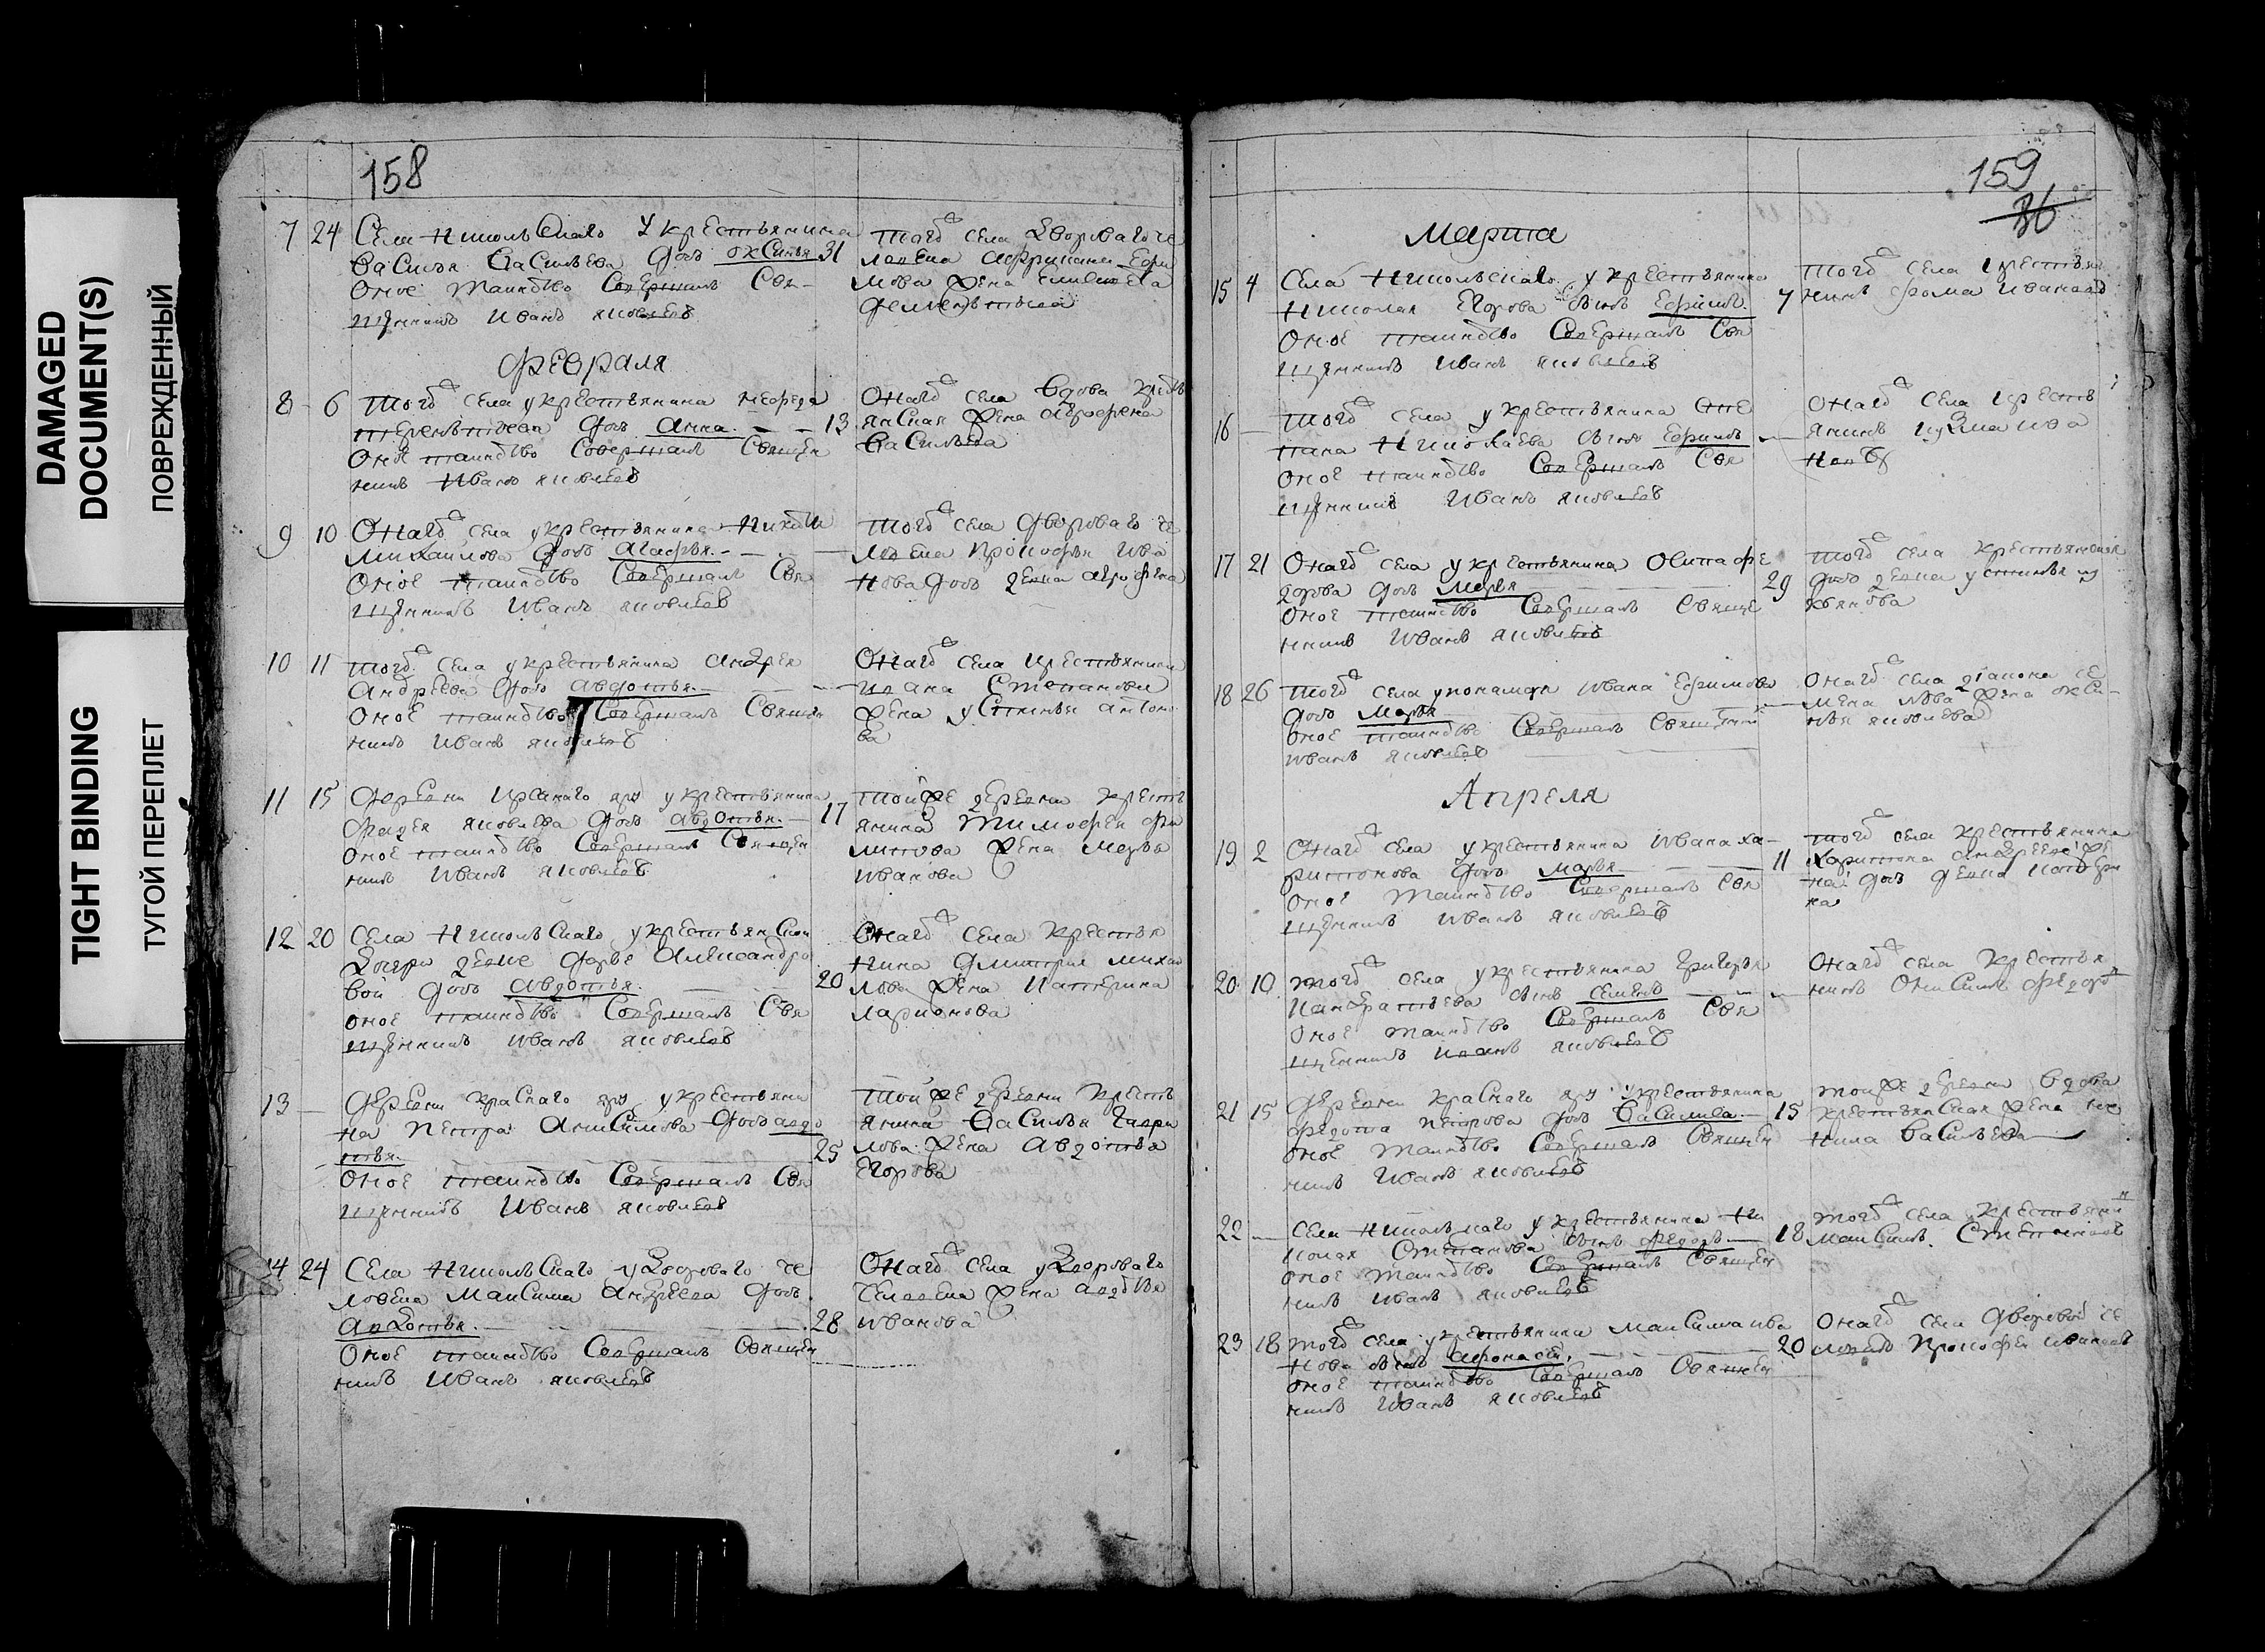 DAMAGED
DOCUMENT(S)
ПОВРЕЖДЕННЫЙ
TIGHT BINDING
ТУГОЙ ПЕРЕПЛЕТ
158
7 24 Села Никольскаго у крестьянина
Василья Васильева дочь оксинья 31
Оное таинство Совершалъ Свя-
щенникъ Иванъ яковлевъ
тогожъ села Дворового че
ловека
мова жена
Февраля
8 6 тогожъ села у крестьянина нефеда
терентьева дочь Анна 13
Оное таинство Совершалъ Священ
никъ Иванъ яковлевъ
Оногожъ села вдова крестъ
янская жена Аграфена
Васильева
9 10 Оногожъ села у крестьянина Никиты
Михайлова дочь Агафья
Оное таинство Совершалъ Свя
щенникъ Иванъ яковлевъ
тогожъ села дворового че
ловека Прокофья Ива
нова дочь девка Аграфена
10 11 тогожъ села у крестьянина Андрея
Андреева дочь Авдотья
Оное таинство Совершалъ Священ
никъ Иванъ яковлевъ
Оногожъ села крестьянина
Ивана Степанова
жена устинья антоно
ва
11 15 деревни Краснаго яру у крестьянина
фадея яковлева дочь авдотья 17
Оное таинство Совершалъ Священ
никъ Иванъ яковлевъ
тойже деревни крестъ
янина Тимофея фи
липова жена марья
иванова
12 20 Села Никольскаго у крестьянской
дочери девке дарье Александро
вой дочь авдотья 20
Оное таинство Совершалъ Свя
щенникъ Иванъ яковлевъ
Оногожъ села крестья
нина дмитрия михаи
лова жена Катерина
ларионова
13 деревни краснаго яру у крестьяни
на Петра Анисимова дочь авдо
тья 25
Оное таинство Совершалъ Свя
щенникъ Иванъ яковлевъ
тойже деревни крестъ
янина Василья Гаври
лова жена авдотья
Егорова
14 24 Села Никольскаго у Дворового че
ловека Максима Андреева дочь
Авдотья 28
Оное таинство Совершалъ Священ
никъ Иванъ яковлевъ
Оногожъ села у Дворового
человека жена авдотья
иванова
159
36
Марта
15 4 Села Никольскаго у крестьянина
Николая Егорова сынъ Ефимъ 7
Оное таинство Совершалъ Свя
щенникъ Иванъ яковлевъ
тогожъ села крестья
нинъ фома Ивановъ
16 тогожъ села у крестьянина Сте
пана Николаева сынъ Ефимъ
Оное таинство Совершалъ Свя
щенникъ Иванъ яковлевъ
Оногожъ села кресть
янинъ кузма ива
новъ
17 21 Оногожъ села у крестьянина Осипа фе
дорова дочь Марья 29
Оное таинство Совершалъ Свяще
нникъ Иванъ яковлевъ
тогожъ села крестьянская
дочь девка устинья
18 26 тогожъ села у пономаря Ивана Ефимова
дочь Марья
Оное таинство Совершалъ Священни
Иванъ яковлевъ
Оногожъ села диакона се
мена жена окси-
нья яковлева
Апреля
19 2 Оногожъ села у крестьянина Ивана ха-
ритонова дочь марья 11
Оное таинство Совершалъ Свя
щенникъ Иванъ яковлевъ
тогожъ села крестьянина
харитона
дочь девка катери
на
20 10 тогожъ села у крестьянина Григорья
Панкратьева сынъ семенъ
Оное таинство Совершалъ Свя
щенникъ Иванъ яковлевъ
Оногожъ села крестья
нинъ Онисимъ федоровъ
21 15 деревни краснаго яру у крестьянина
федота Петрова дочь Васильева 15
Оное таинство Совершалъ Священ
никъ Иванъ яковлевъ
тойже деревни вдова
крестьянская жена
Васильева
22 Села Никольскаго у крестьянина Ни
колая Степанова сынъ федоръ 18
Оное таинство Совершалъ Священ
никъ Иванъ яковлевъ
тогожъ села крестьяни
Максимъ Степановъ
23 18 тогожъ села у крестьянина Максима ива
нова сынъ афонасей 20
Оное таинство Совершалъ Священ
никъ Иванъ яковлевъ
Оногожъ села дворовой че
ловекъ Прокофей ивановъ